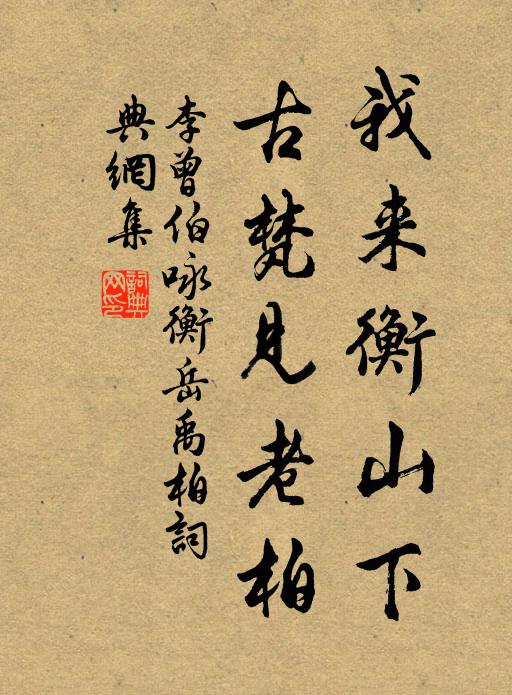 我来衡山下
古梵見老柏
李曾伯咏衡岳禹柏詞
典網集
詞典网印